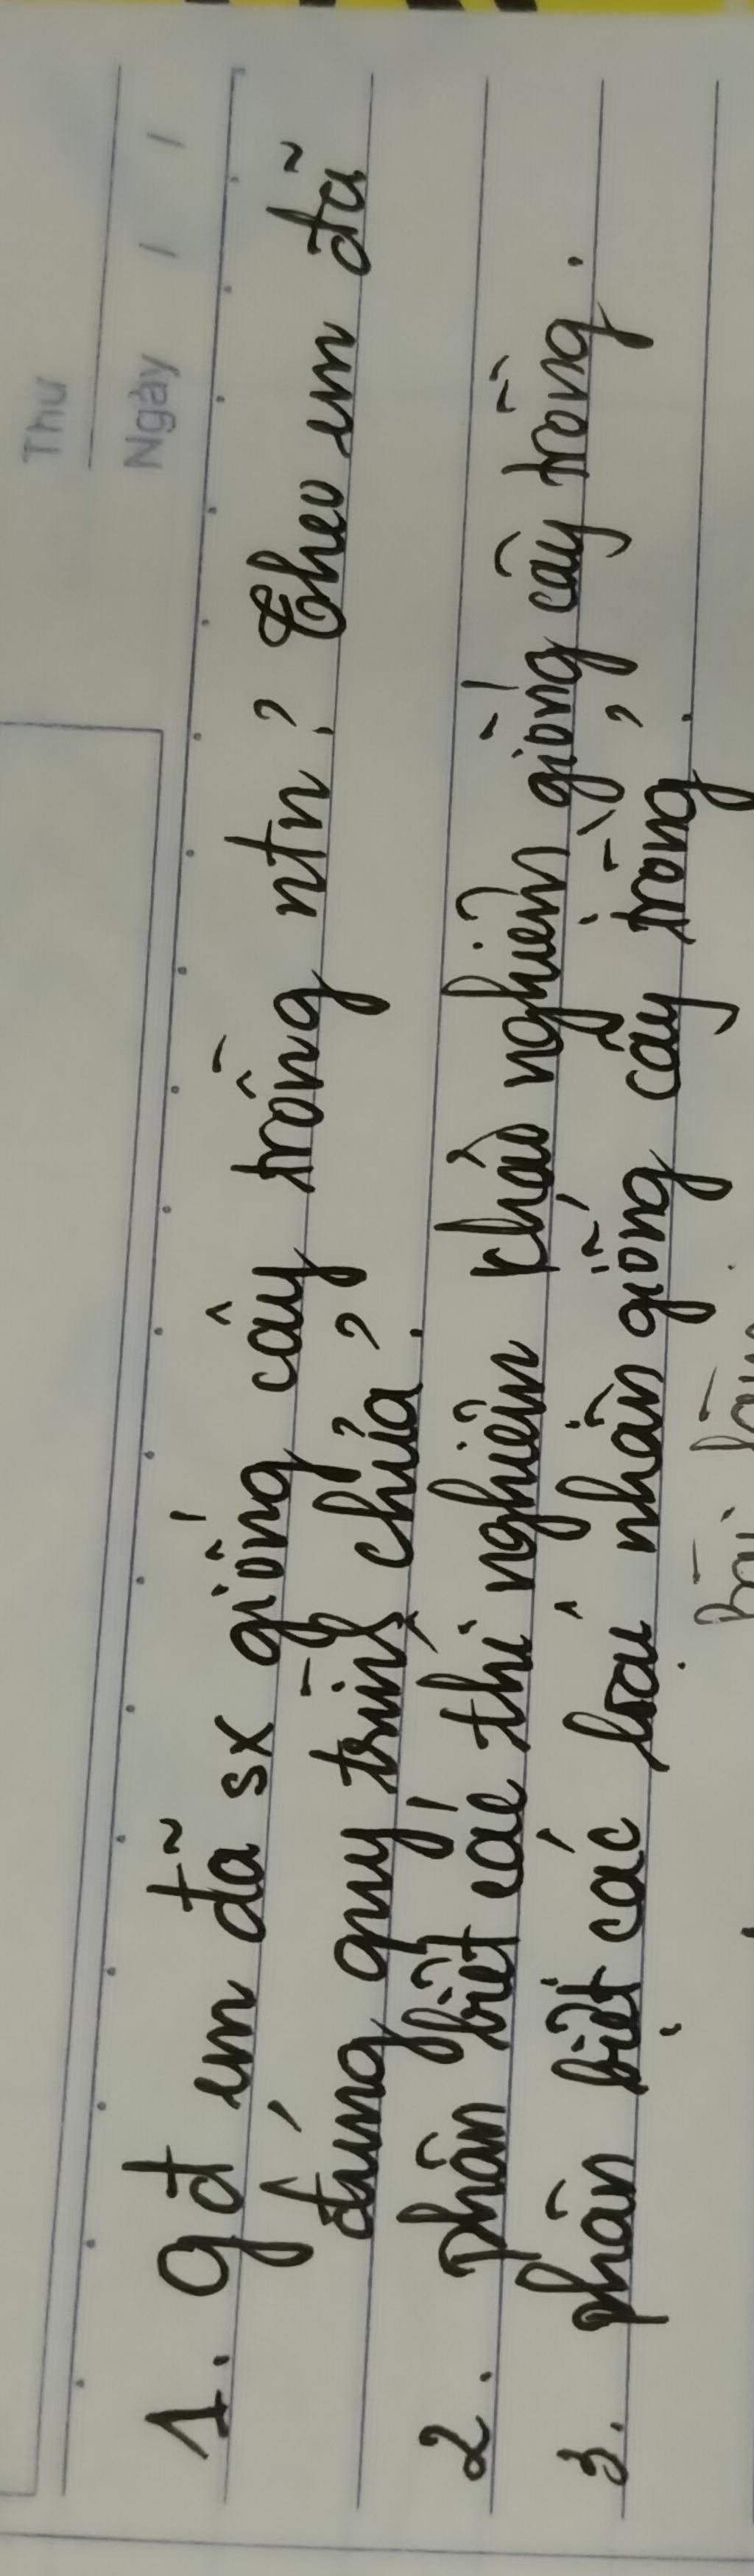 Thứ
Ngày / /
1. gđ em đã sx giống cây trồng ntn? Theo em đã
đúng quy trình chưa?
2. phân biệt các thí nghiệm khảo nghiệm giống cây trồng.
3. phân biệt các loại nhân giống cây trồng?
Bài làm